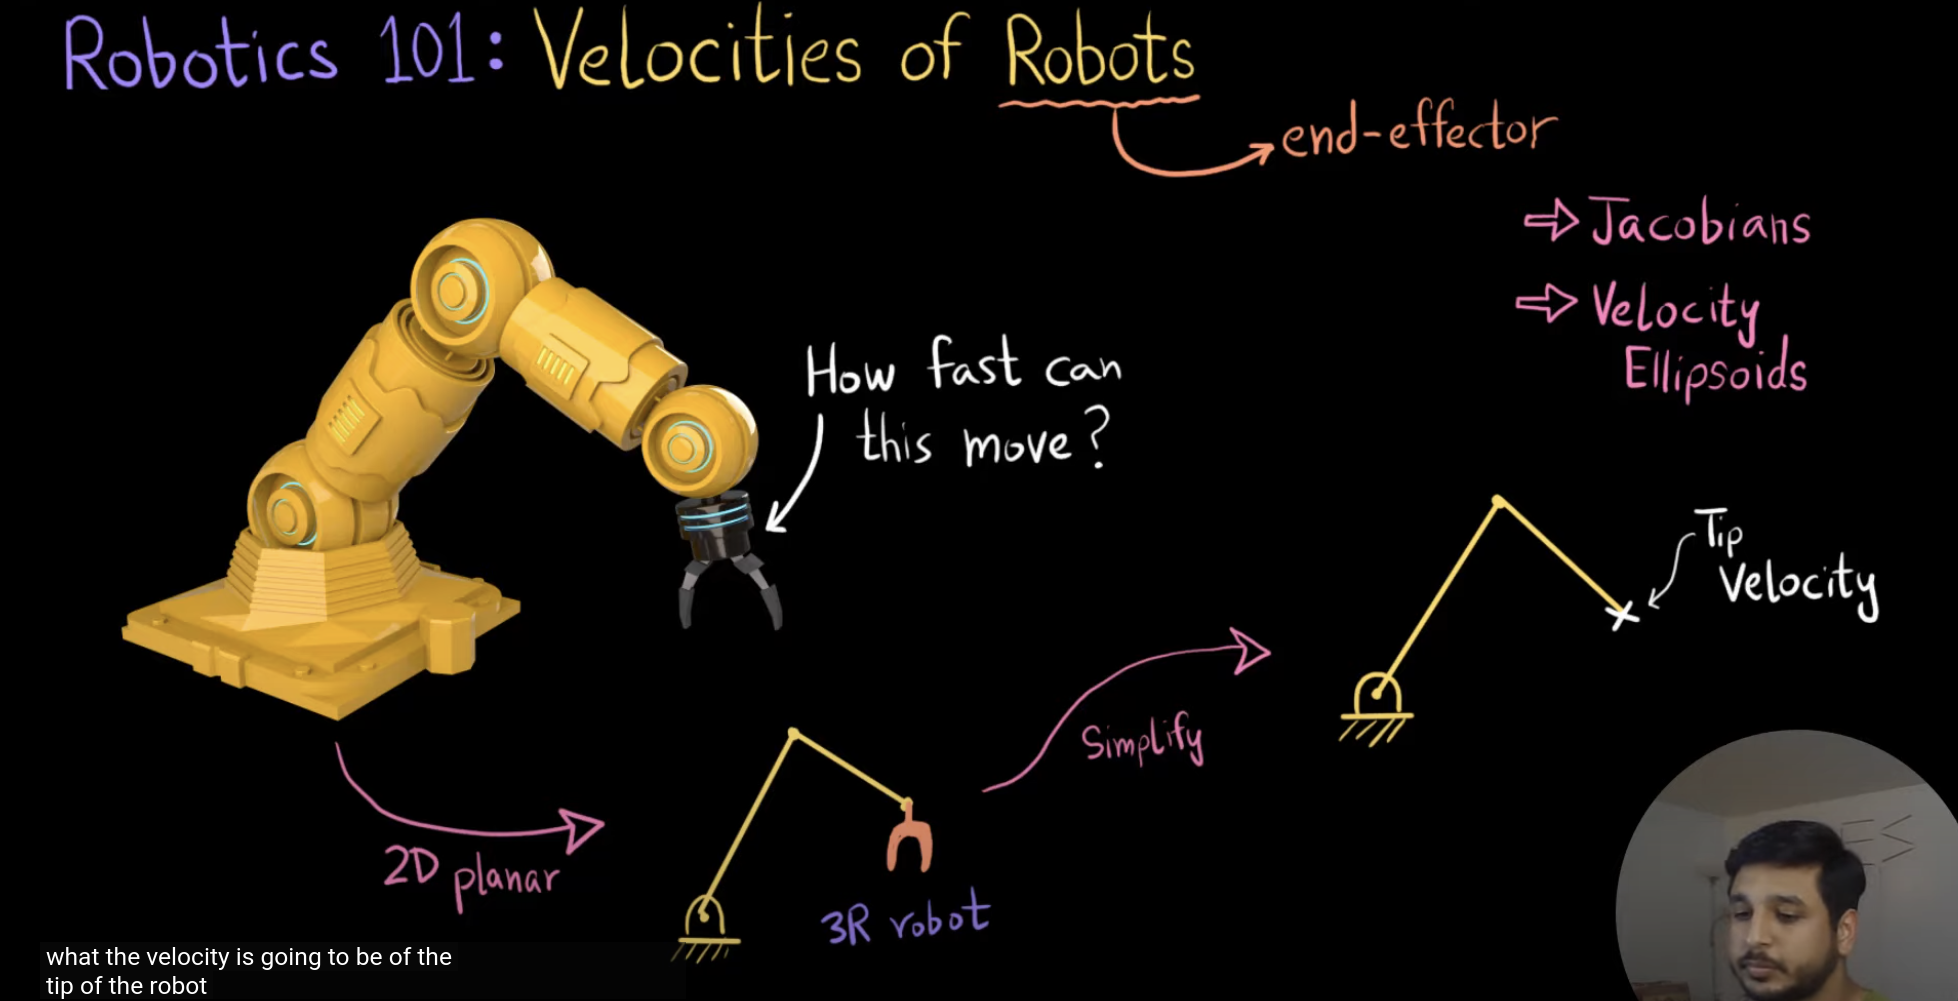 Robotics 101: Velocities of Robots
end-effector
⇒ Jacobians
⇒ Velocity
Ellipsoids
How fast can
this move?
Tip
Velocity
Simplify
2D planar
3R robot
what the velocity is going to be of the
tip of the robot